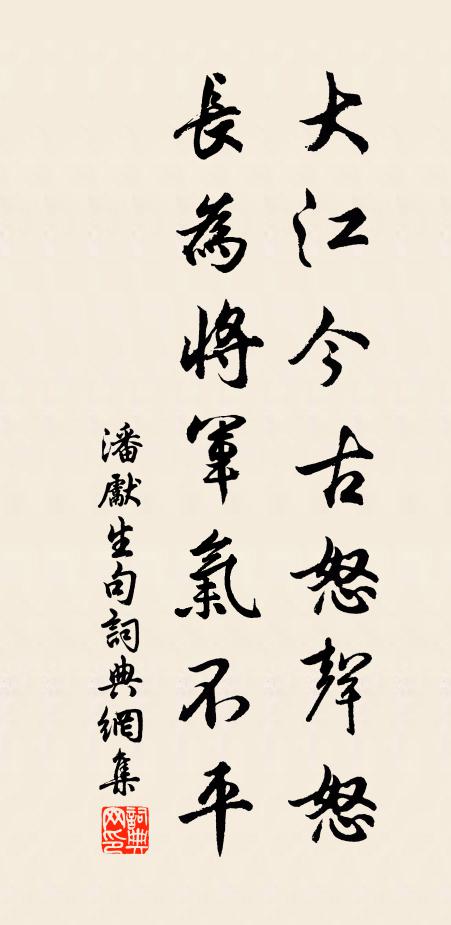 大江今古怒聲怒
長為將軍氣不平
潘獻生句詞典網集
詞典網印